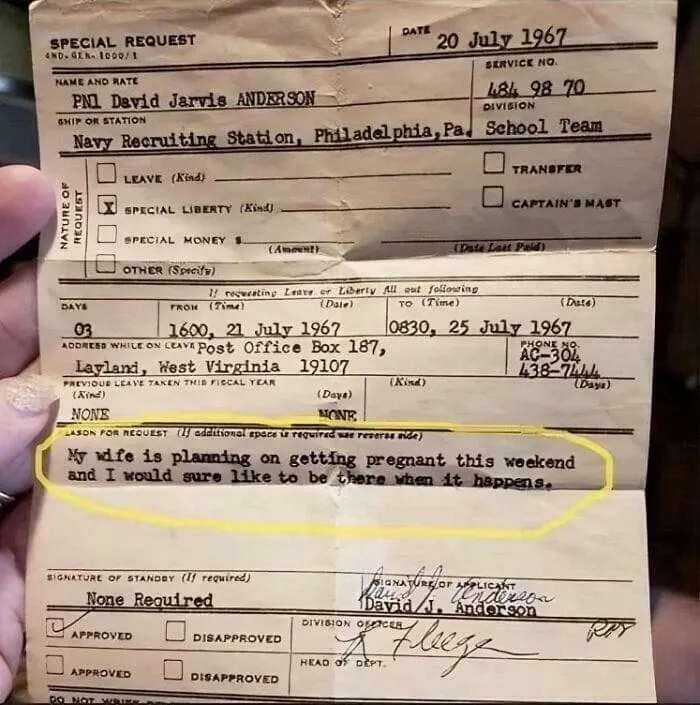 SPECIAL REQUEST
DATE 20 July 1967
SERVICE NO.
NAME AND RATE
484 98 70
PN1 David Jarvis ANDERSON
DIVISION
SHIP OR STATION
Navy Recruiting Station, Philadelphia, Pa. School Team
NATURE OF REQUEST
LEAVE (Kind)
TRANSFER
X SPECIAL LIBERTY (Kind)
CAPTAIN'S MAST
SPECIAL MONEY $ (Amount) (Date Last Paid)
OTHER (Specify)
If requesting Leave or Liberty fill out following
DAYS FROM (Time) (Date) TO (Time) (Date)
03 1600, 21 July 1967 0830, 25 July 1967
ADDRESS WHILE ON LEAVE Post Office Box 187, PHONE NO.
AC-304
Layland, West Virginia 19107 438-7444
PREVIOUS LEAVE TAKEN THIS FISCAL YEAR
(Kind) (Days) (Kind) (Days)
NONE NONE
REASON FOR REQUEST (If additional space is required use reverse side)
My wife is planning on getting pregnant this weekend
and I would sure like to be there when it happens.
SIGNATURE OF STANDBY (If required) SIGNATURE OF APPLICANT
None Required David J. Anderson
APPROVED DISAPPROVED DIVISION OFFICER
APPROVED DISAPPROVED HEAD OF DEPT.
DO NOT WRITE